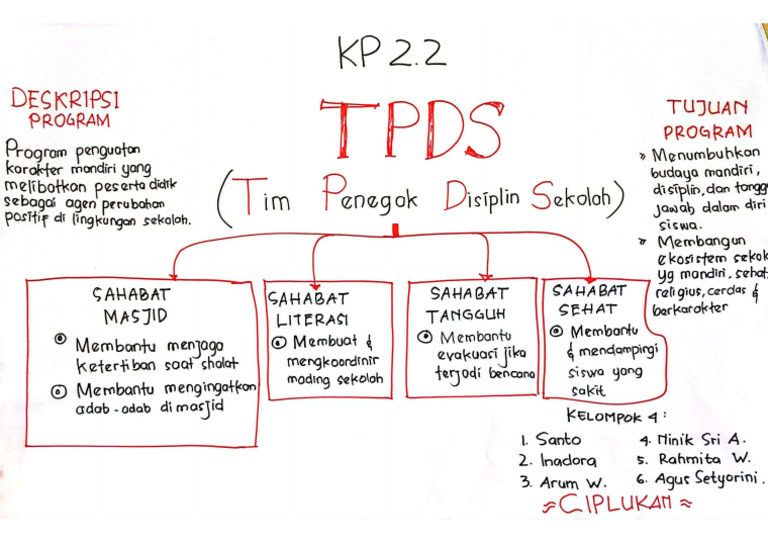 KP 2.2
TPDS
(Tim Penegak Disiplin Sekolah)
DESKRIPSI
PROGRAM
Program penguatan
karakter mandiri yang
melibatkan peserta didik
sebagai agen perubahan
positif di lingkungan sekolah.
TUJUAN
PROGRAM
» Menumbuhkan
budaya mandiri,
disiplin, dan tangg
jawab dalam diri
siswa.
» Membangun
ekosistem sekol
yg mandiri, sehat
religius, cerdas &
berkarakter
SAHABAT
MASJID
Membantu menjaga
ketertiban saat shalat
Membantu mengingatkan
adab-adab di masjid
SAHABAT
LITERASI
Membuat &
mengkoordinir
mading sekolah
SAHABAT
TANGGUH
Membantu
evakuasi jika
terjadi bencana
SAHABAT
SEHAT
Membantu
& mendampingi
siswa yang
sakit
KELOMPOK 4:
1. Santo
2. Inadora
3. Arum W.
4. Ninik Sri A.
5. Rahmita W.
6. Agus Setyorini.
≈CIPLUKAN≈